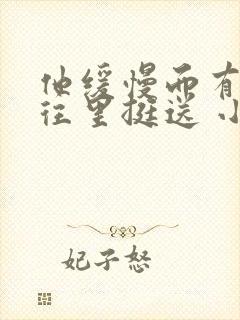 他缓慢而有
往里挺送 小
妃子怒